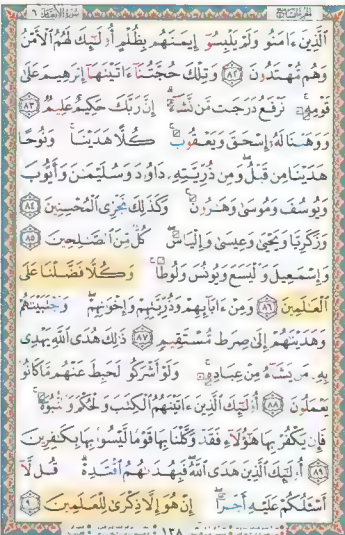 سورة الأنعام ٦
الذين ءامنوا ولم يلبسوا إيمنهم بظلم أولئك لهم الأمن
وهم مهتدون ٨٢ وتلك حجتنا ءاتينها إبرهيم على
قومه نرفع درجت من نشاء إن ربك حكيم عليم ٨٣
ووهبنا له إسحق ويعقوب كلا هدينا ونوحا
هدينا من قبل ومن ذريته داود وسليمن وأيوب
ويوسف وموسى وهرون وكذلك نجزى المحسنين ٨٤
وزكريا ويحيى وعيسى وإلياس كل من الصلحين ٨٥
وإسمعيل واليسع ويونس ولوطا وكلا فضلنا على
العلمين ٨٦ ومن ءابائهم وذريتهم وإخونهم واجتبينهم
وهدينهم إلى صرط مستقيم ٨٧ ذلك هدى الله يهدى
به من يشاء من عباده ولو أشركوا لحبط عنهم ما كانوا
يعملون ٨٨ أولئك الذين ءاتينهم الكتب والحكم والنبوة
فإن يكفر بها هؤلاء فقد وكلنا بها قوما ليسوا بها بكفرين
٨٩ أولئك الذين هدى الله فبهدىهم اقتده قل لا
أسئلكم عليه أجرا إن هو إلا ذكرى للعلمين ٩٠
١٣٨